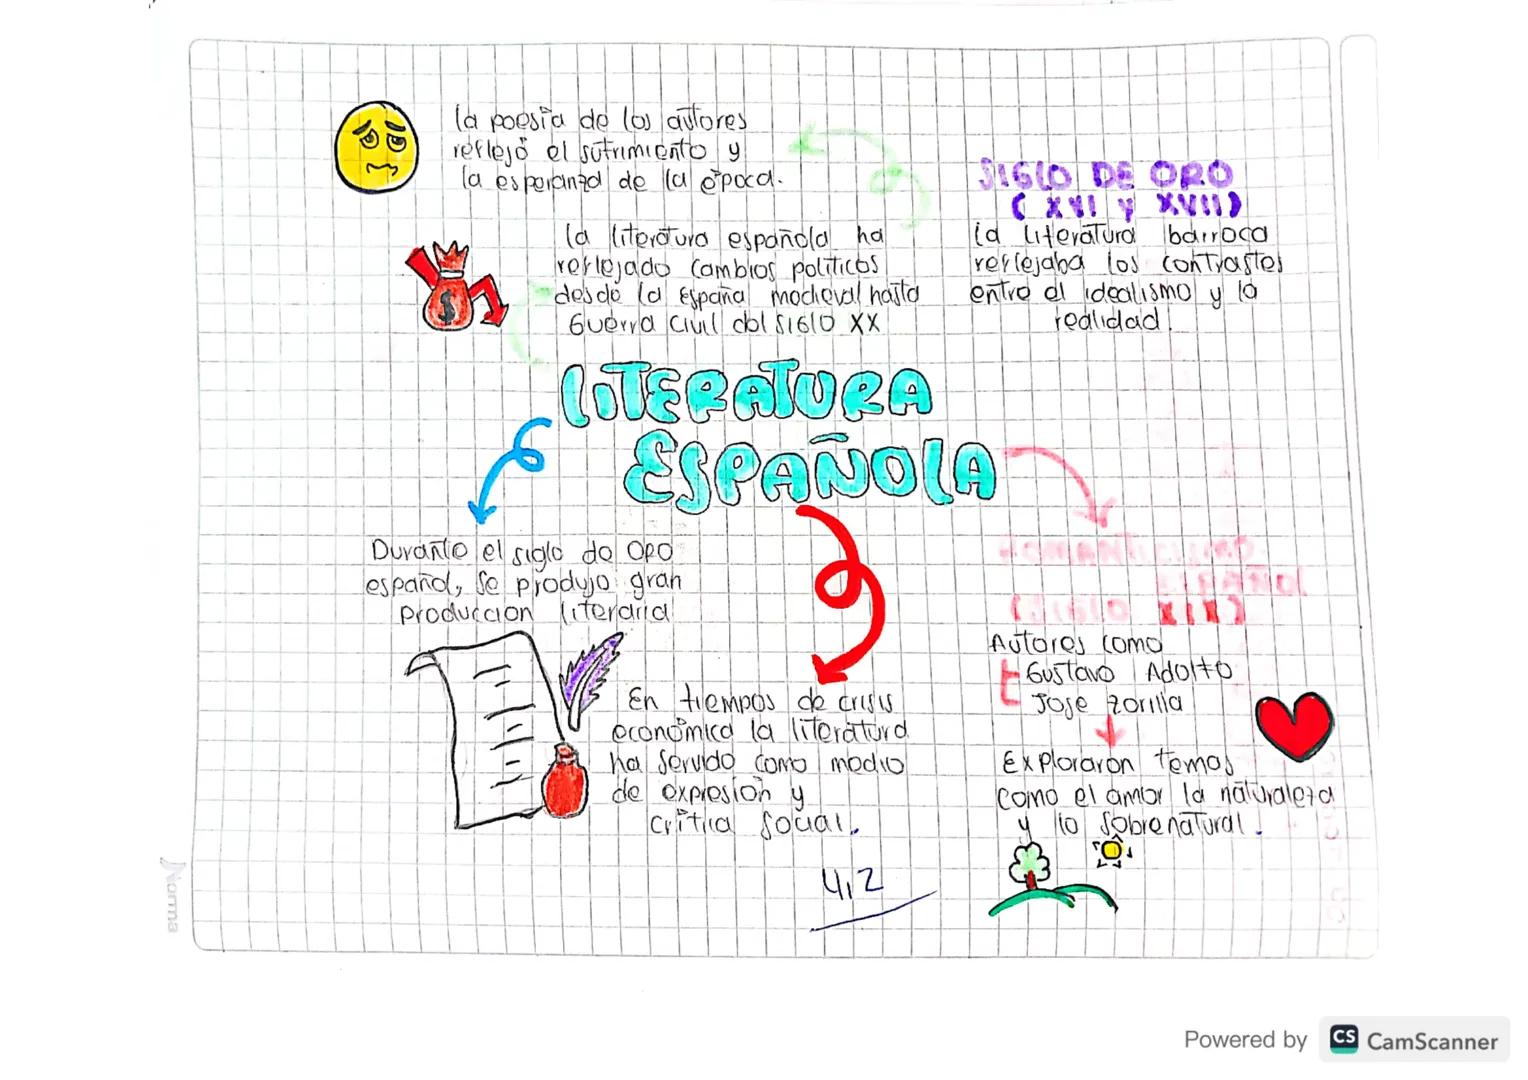 La poesía de los autores
reflejó el sufrimiento y
la esperanza de la época.
La literatura española ha
reflejado cambios políticos
desde la España medieval hasta
Guerra Civil del Siglo XX
SIGLO DE ORO
(XVI y XVII)
La literatura barroca
reflejaba los contrastes
entre el idealismo y la
realidad.
LITERATURA
ESPAÑOLA
Durante el siglo de ORO
español, se produjo gran
produccion literaria
En tiempos de crisis
económica la literatura
ha servido como medio
de expresión y
crítica social.
ROMANTICISMO
ESPAÑOL
(SIGLO XIX)
Autores como
Gustavo Adolfo
Jose Zorilla
Exploraron temas
como el amor la naturaleza
y lo sobrenatural.
4,2
Norma
Powered by CS CamScanner